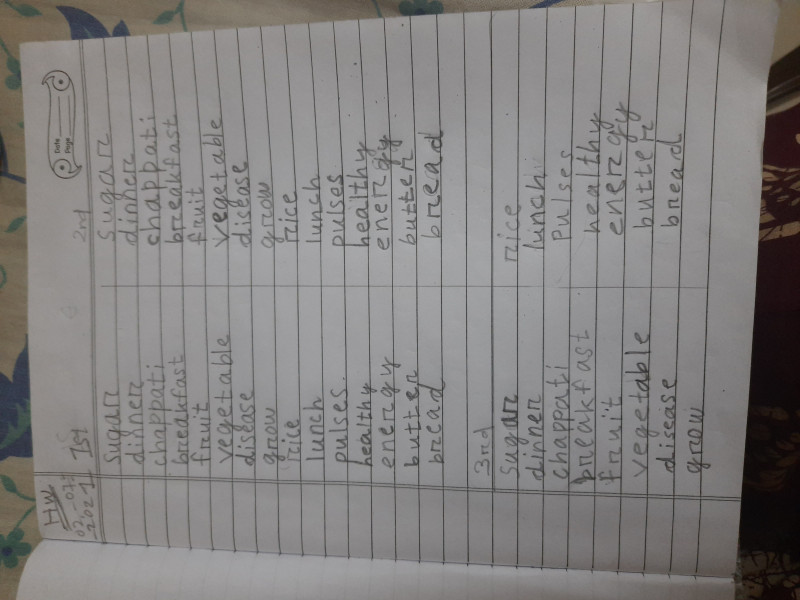 HW
1st 2nd
Date
Page
sugar sugar
dinner dinner
chappati chappati
breakfast breakfast
fruit fruit
vegetable vegetable
disease disease
grow grow
rice rice
lunch lunch
pulses. pulses
healthy healthy
energy energy
butter butter
bread bread
3rd
sugar rice
dinner lunch
chappati Pulses
breakfast healthy
fruit energy
vegetable butter
disease bread
grow